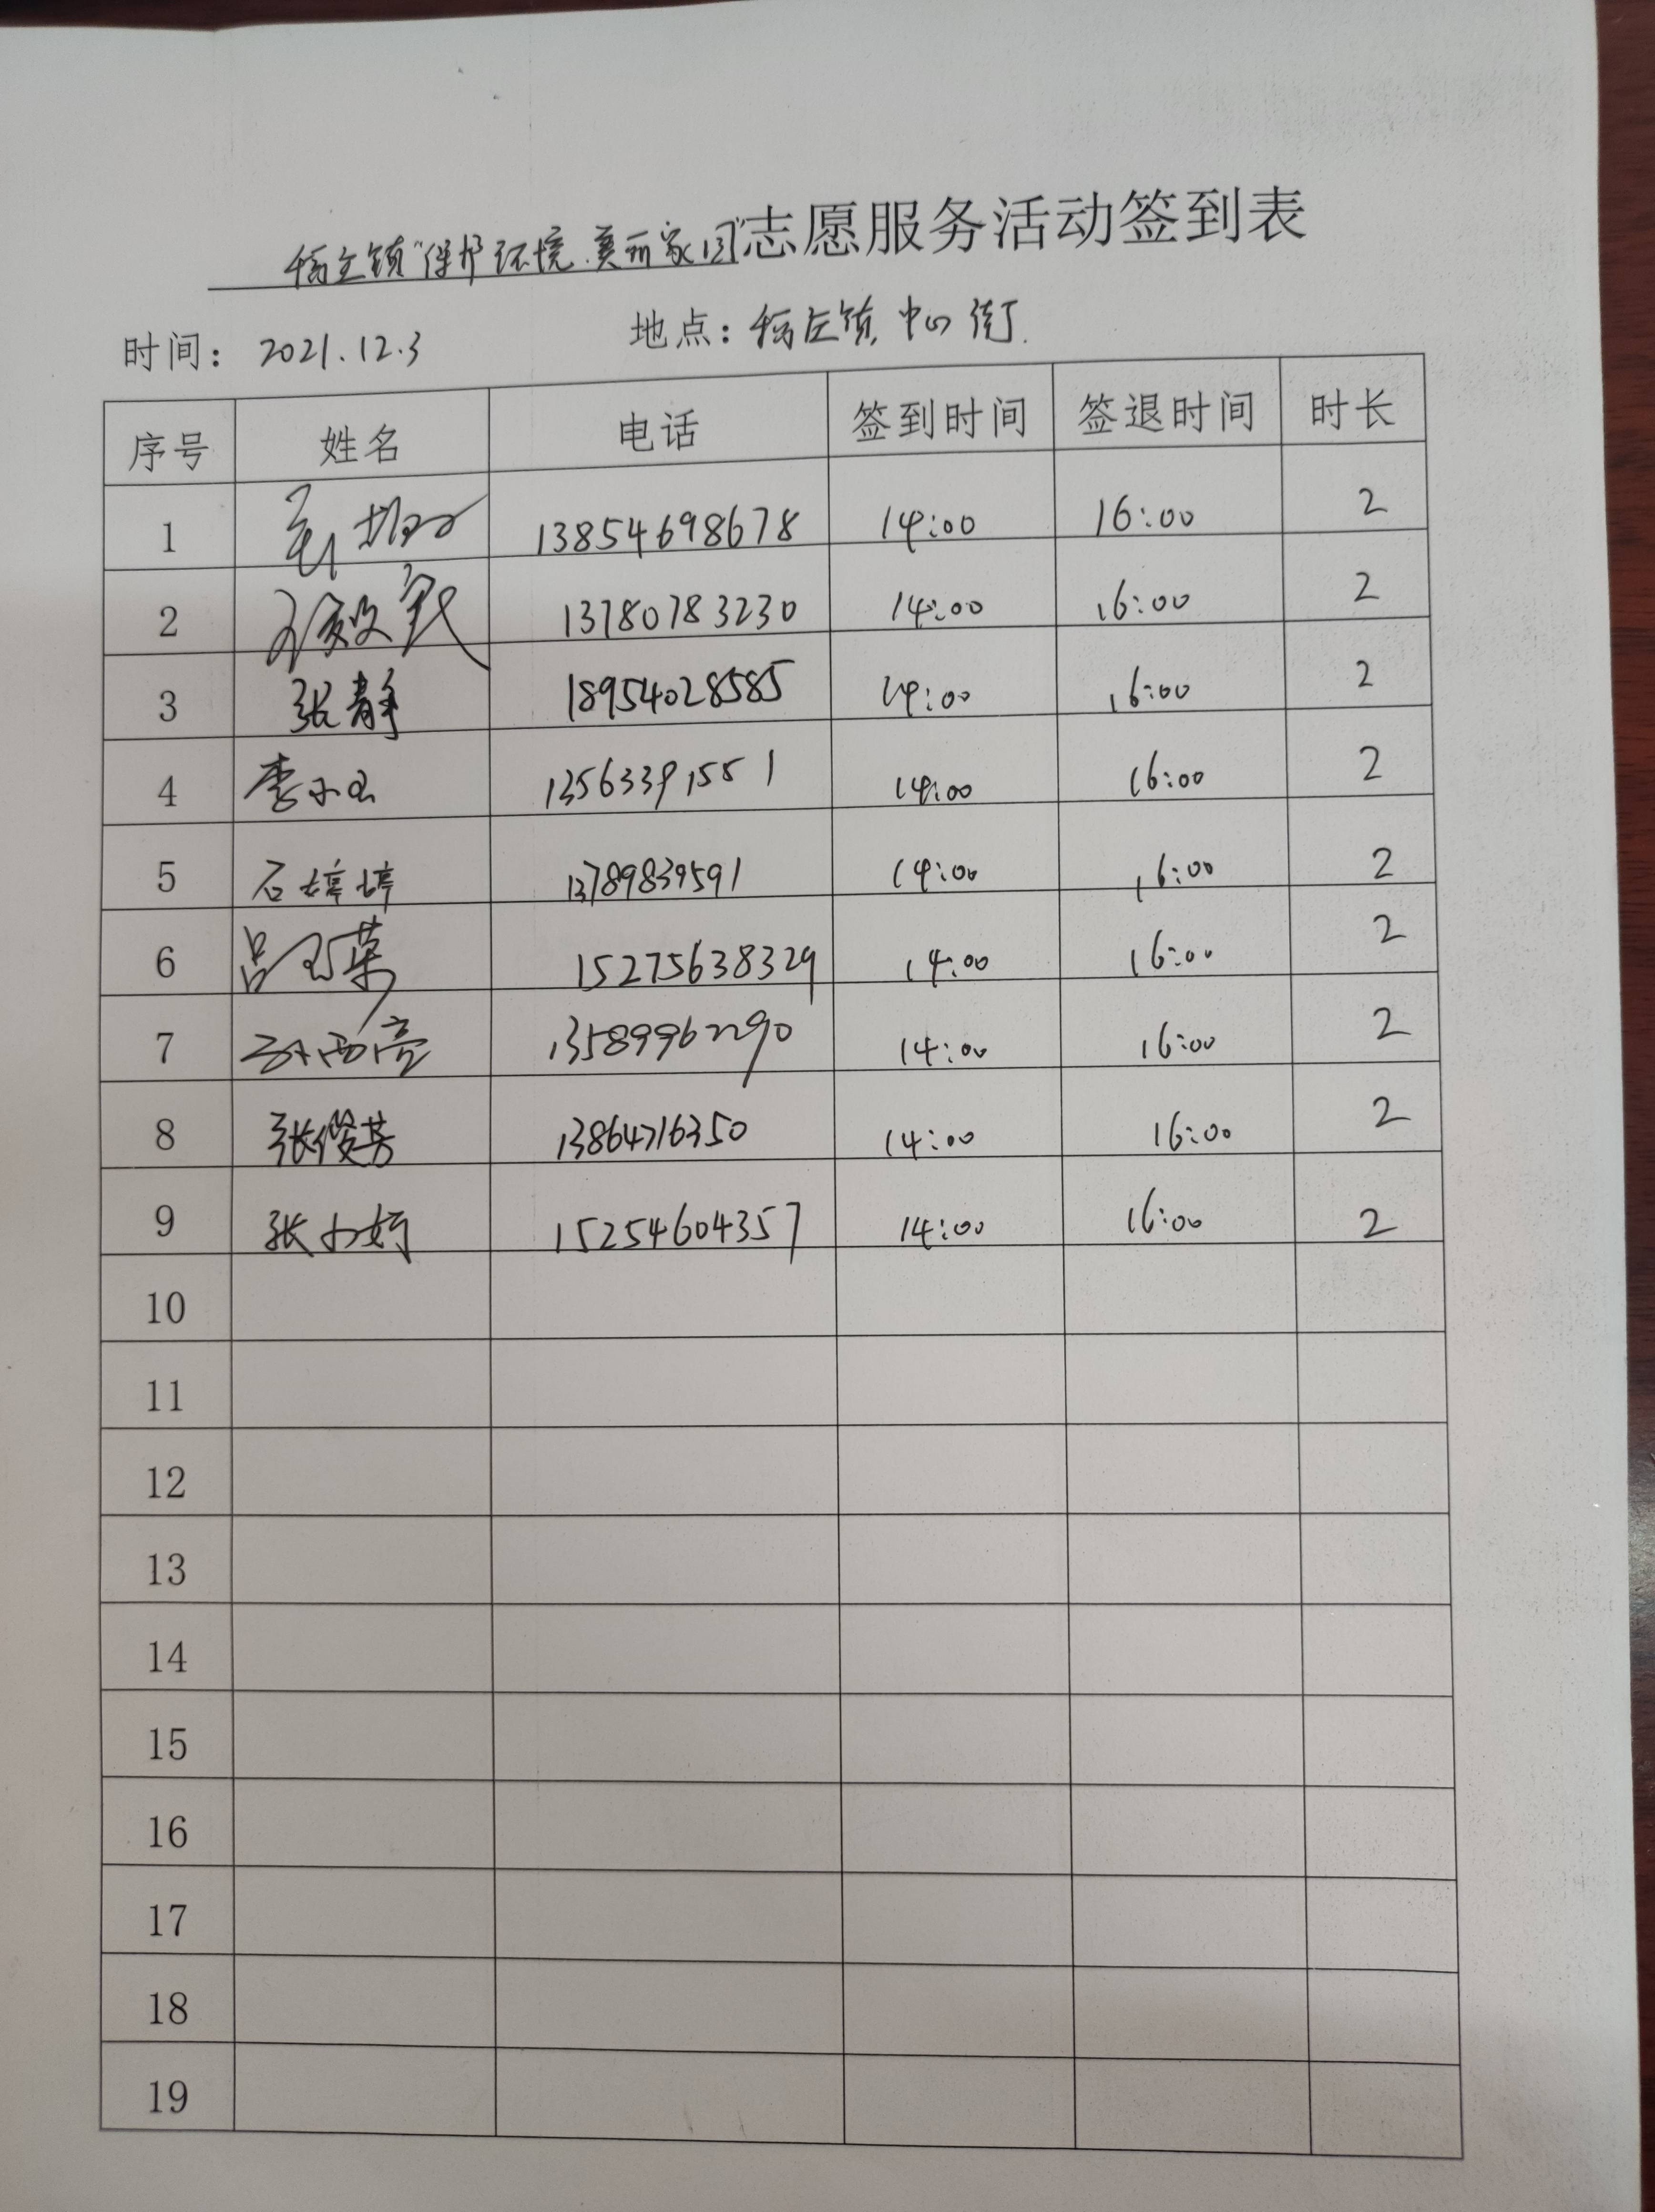 稻庄镇“保护环境、美丽家园”志愿服务活动签到表
时间: 2021.12.3 地点: 稻庄镇中心街
序号 姓名 电话 签到时间 签退时间 时长
1 13854698678 14:00 16:00 2
2 13780783230 14:00 16:00 2
3 张静 18954028585 14:00 16:00 2
4 李小 13563391551 14:00 16:00 2
5 石婷婷 13789839591 14:00 16:00 2
6 吕 荣 15275638329 14:00 16:00 2
7 亮 13589962290 14:00 16:00 2
8 张俊芳 13864716350 14:00 16:00 2
9 张小婷 15254604357 14:00 16:00 2
10
11
12
13
14
15
16
17
18
19